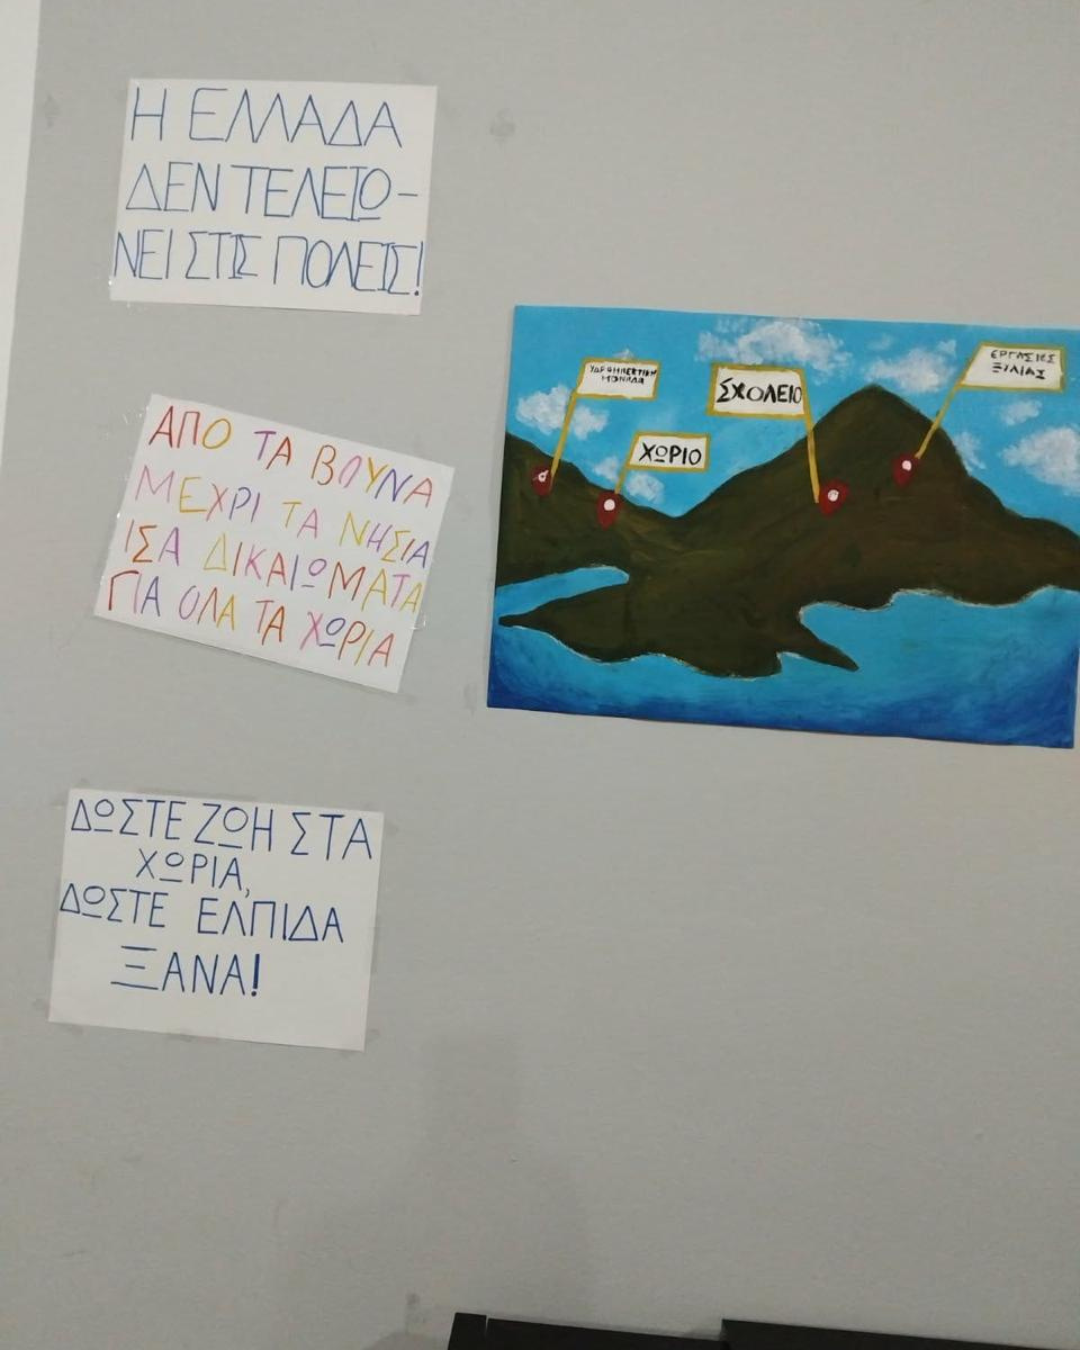 Η ΕΛΛΑΔΑ
ΔΕΝ ΤΕΛΕΙΩ-
ΝΕΙ ΣΤΙΣ ΠΟΛΕΙΣ!
ΑΠΟ ΤΑ ΒΟΥΝΑ
ΜΕΧΡΙ ΤΑ ΝΗΣΙΑ
ΙΣΑ ΔΙΚΑΙΩΜΑΤΑ
ΓΙΑ ΟΛΑ ΤΑ ΧΩΡΙΑ
ΔΩΣΤΕ ΖΩΗ ΣΤΑ
ΧΩΡΙΑ,
ΔΩΣΤΕ ΕΛΠΙΔΑ
ΞΑΝΑ!
ΜΟΝΑΔΑ
ΧΩΡΙΟ
ΣΧΟΛΕΙΟ
ΕΡΓΑΣΙΕΣ
ΞΥΛΙΑΣ